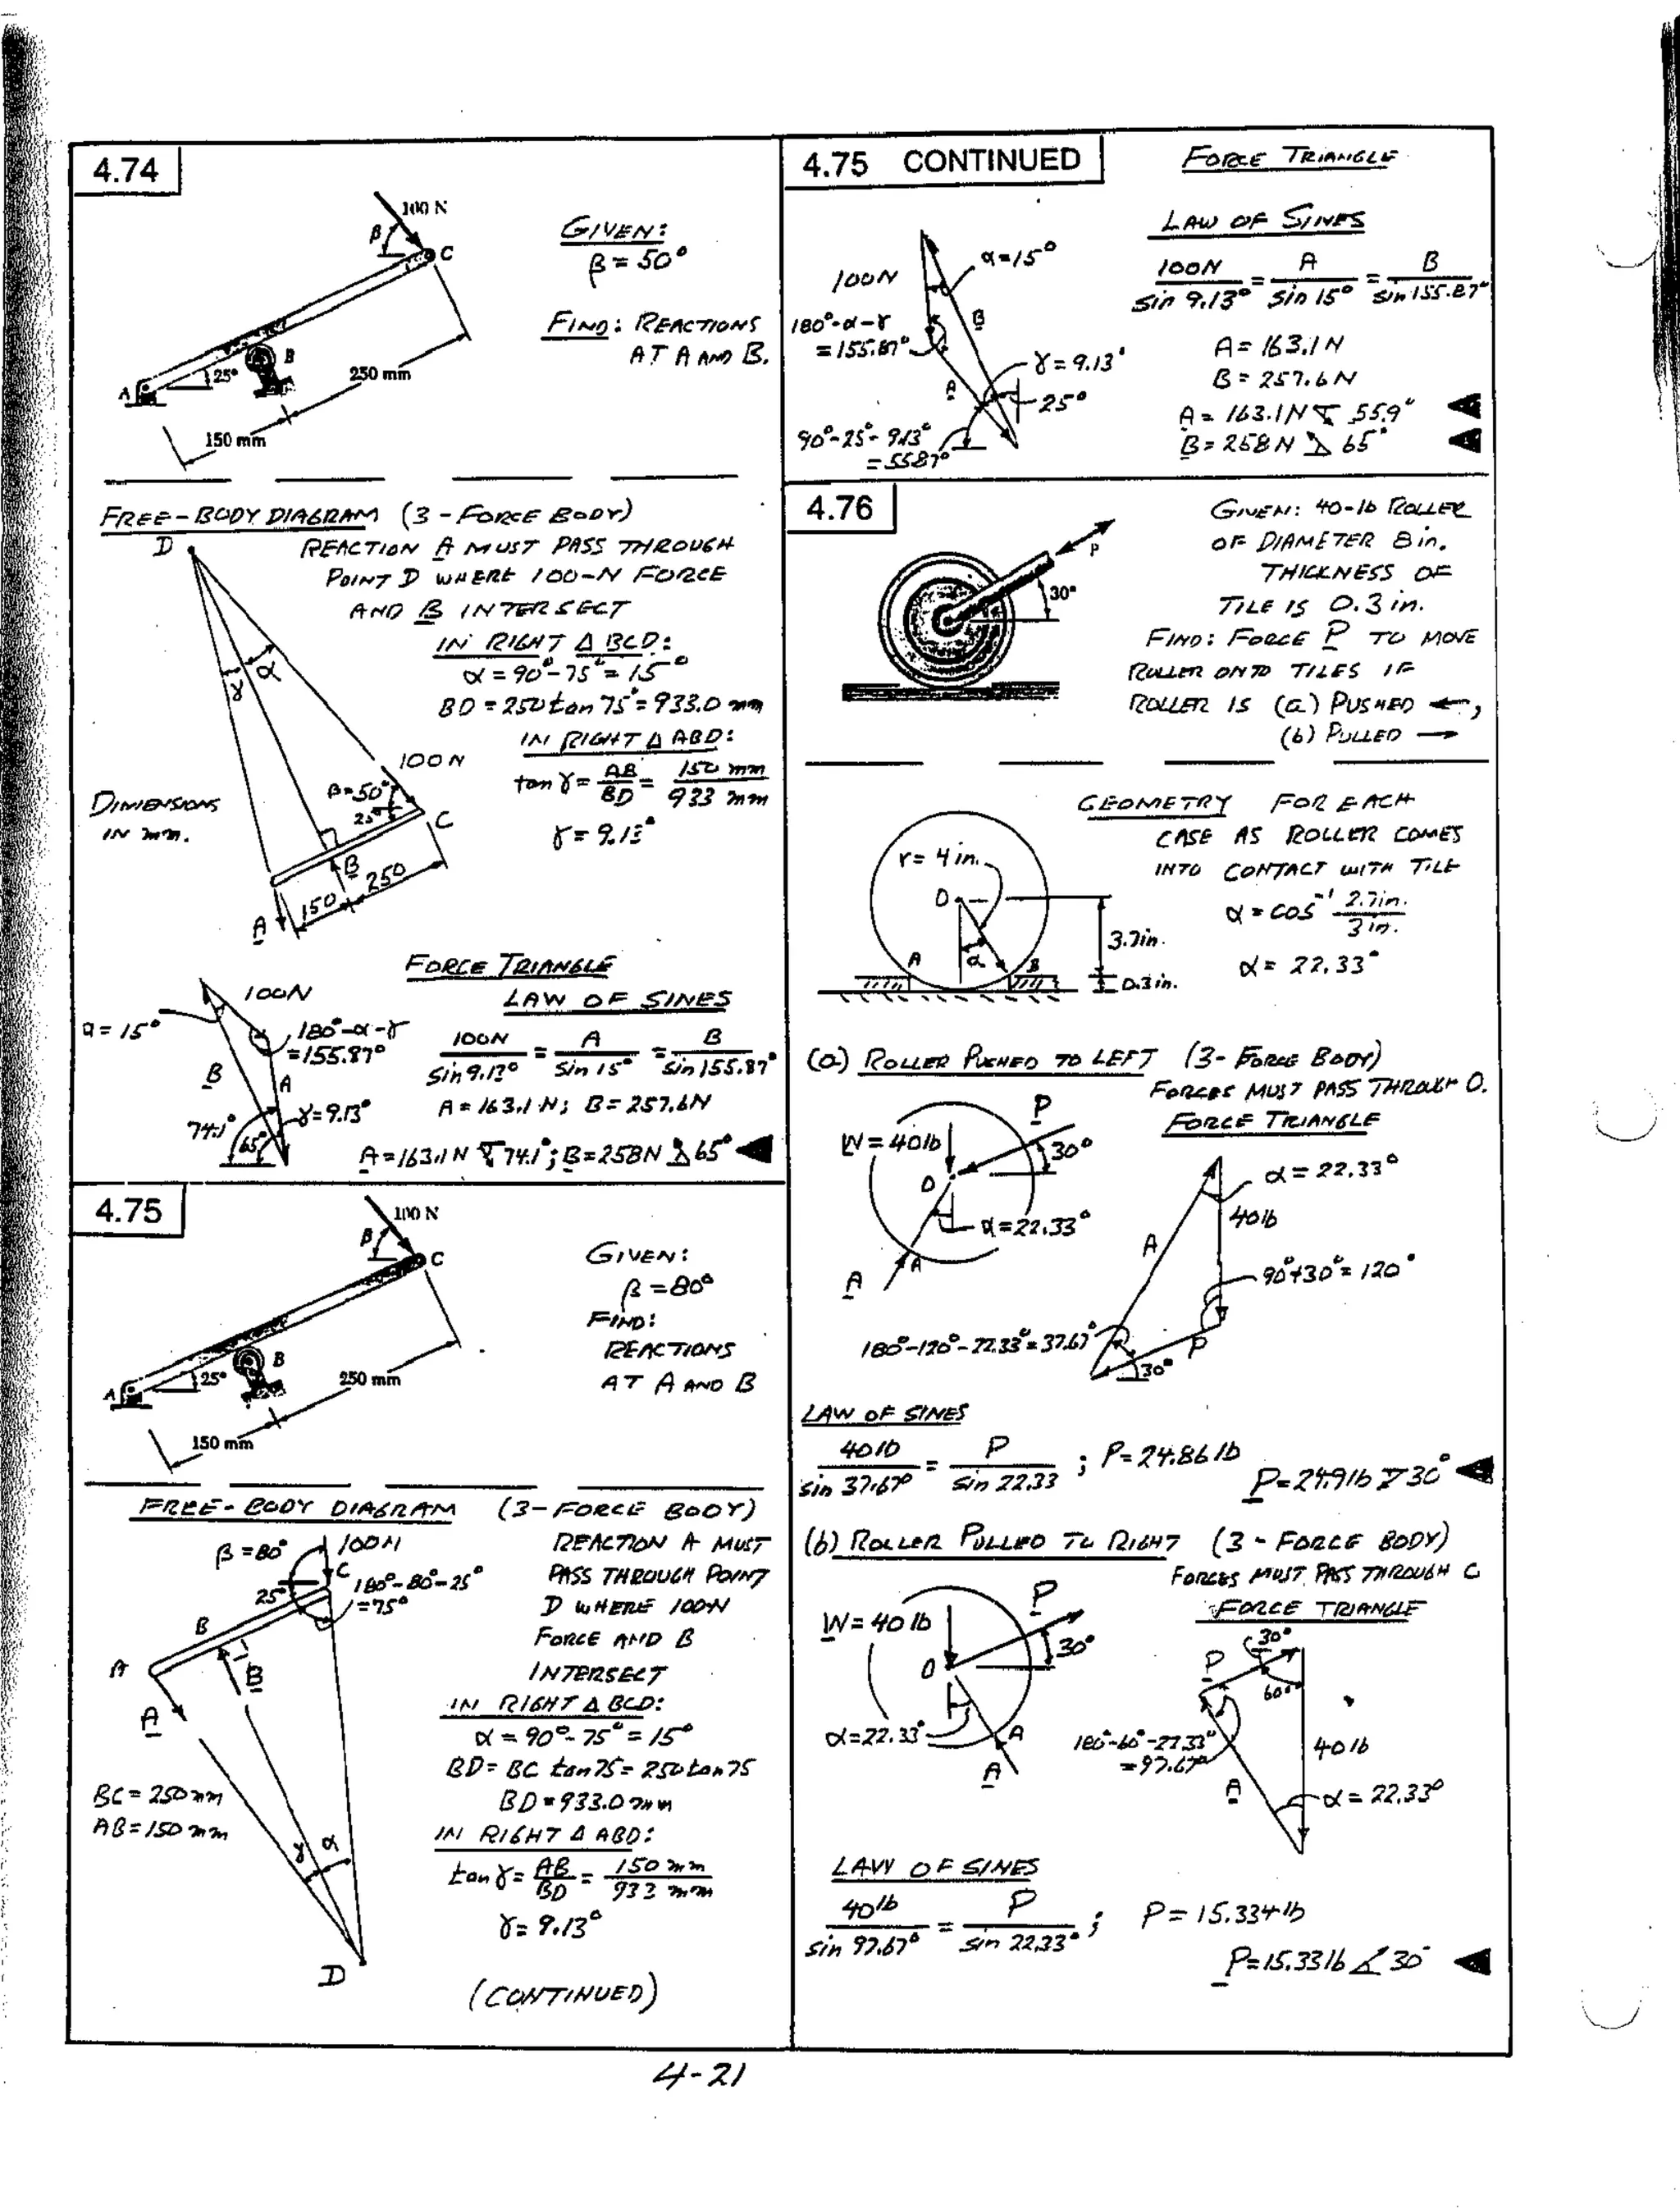 4.74
100 N
β
C
B
25°
A
250 mm
150 mm
GIVEN:
β = 50°
FIND: REACTIONS
AT A AND B.
FREE-BODY DIAGRAM (3-FORCE BODY)
D
REACTION A MUST PASS THROUGH
POINT D WHERE 100-N FORCE
AND B INTERSECT
IN RIGHT Δ BCD:
α = 90°-75° = 15°
BD = 250 tan 75° = 933.0 mm
IN RIGHT Δ ABD:
tan γ = AB/BD = 150 mm/933 mm
γ = 9.13°
γ
α
100 N
β=50°
25°
C
DIMENSIONS
IN mm.
B
150
250
A
FORCE TRIANGLE
LAW OF SINES
100N
α = 15°
180°-α-γ
=155.87°
B
A
γ=9.13°
74.1°
65°
100N/sin 9.13° = A/sin 15° = B/sin 155.87°
A = 163.1 N; B = 257.6N
A = 163.1 N 74.1°; B = 258N 65°
4.75
100 N
β
C
B
25°
A
250 mm
150 mm
GIVEN:
β = 80°
FIND:
REACTIONS
AT A AND B
FREE-BODY DIAGRAM (3-FORCE BODY)
β = 80°
100N
C
25°
180°-80°-25°
=75°
B
A
B
A
REACTION A MUST
PASS THROUGH POINT
D WHERE 100-N
FORCE AND B
INTERSECT
IN RIGHT Δ BCD:
α = 90°-75° = 15°
BD = BC tan 75 = 250 tan 75
BD = 933.0 mm
BC = 250 mm
AB = 150 mm
IN RIGHT Δ ABD:
tan γ = AB/BD = 150 mm/933 mm
γ = 9.13°
γ
α
D
(CONTINUED)
4.75 CONTINUED
FORCE TRIANGLE
LAW OF SINES
100N
α=15°
180°-α-γ
=155.87°
B
γ = 9.13°
A
25°
90°-25°-9.13°
=55.87°
100N/sin 9.13° = A/sin 15° = B/sin 155.87°
A = 163.1 N
B = 257.6 N
A = 163.1 N 55.9°
B = 258 N 65°
4.76
P
30°
GIVEN: 40-lb ROLLER
OF DIAMETER 8 in.
THICKNESS OF
TILE IS 0.3 in.
FIND: FORCE P TO MOVE
ROLLER ONTO TILES IF
ROLLER IS (a) PUSHED ←,
(b) PULLED →
GEOMETRY FOR EACH
CASE AS ROLLER COMES
INTO CONTACT WITH TILE
α = cos⁻¹ 2.7in./3 in.
α = 22.33°
r = 4 in.
O
α
A
B
3.7in.
0.3 in.
(a) ROLLER PUSHED TO LEFT (3-FORCE BODY)
FORCES MUST PASS THROUGH O.
FORCE TRIANGLE
W = 40lb
P
30°
O
α=22.33°
A
A
α = 22.33°
40lb
A
90°+30°= 120°
180°-120°-22.33°= 37.67°
P
30°
LAW OF SINES
40lb/sin 37.67° = P/sin 22.33 ; P = 24.86 lb
P = 24.9 lb 30°
(b) ROLLER PULLED TO RIGHT (3-FORCE BODY)
FORCES MUST PASS THROUGH O
FORCE TRIANGLE
W = 40 lb
P
30°
O
α=22.33°
A
A
30°
P
60°
180°-60°-22.33°
=97.67°
40 lb
A
α = 22.33°
LAW OF SINES
40lb/sin 97.67° = P/sin 22.33° ; P = 15.334 lb
P = 15.33 lb 30°
4-21